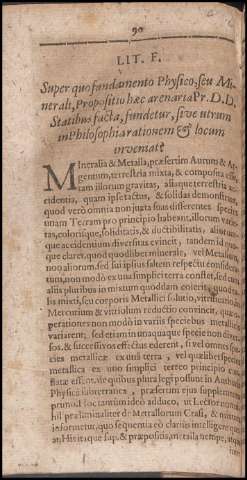 90
LIT. F.
Super quo fundamento Physico, seu Mi-
nerali, Propositio hæc arenaria Pr. D. D.
Statibus facta, fundetur, sive utrum
in Philosophia rationem & locum
inveniat?
MIneralia & Metalla, præsertim Aurum & Ar-
gentum, terrestria mixta, & composita esse,
tam illorum gravitas, aliaque terrestria ac-
cidentia, quam ipse tactus, & soliditas demonstrant,
quod verò omnia non juxta suas differentes species
unam Terram pro principio habeant, illorum varie-
tas, colorisque, soliditatis, & ductibilitatis, aliorum-
que accidentium diversitas evincit, tandem id quo-
que claret, quod quodlibet minerale, vel Metallum,
non aliorum, sed sui ipsius saltem respectu considera-
tum, non modò ex una simplici terra constet, sed cum
aliis pluribus in mixtum quoddam
lis mixti, seu corporis Metallici solutio, vitrificatio
Mercurium & vitriolum reductio convincit, quæ o-
perationes non modò in variis speciebus metallicis
variarent, sed etiam in una quaque specie non diver-
sos, & successivos effectus ederent, si vel omnes spe-
cies metallicæ ex una terra, vel quælibet species
metallica ex uno simplici terreo principio
flatæ essent, de quibus plura legi possunt in
Physica subterranea, præsertim ejus supplemento
primo. Locum tamen ideò adduco, ut Lector non ni-
hil præliminaliter de Metallorum Crasi, &
informetur, quo sequentia eò clariùs intelligere que-
at: His itaque sup. & præpositis,